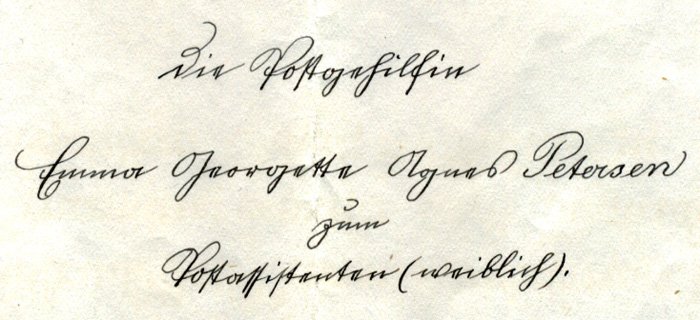 Die Postgehilfin
Emma Georgette Agnes Petersen
zum
Postassistenten (weiblich).